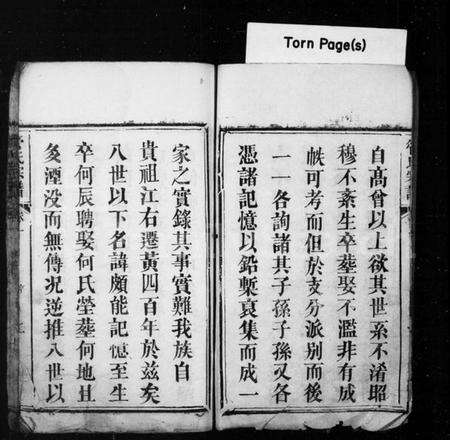 Torn Page(s)
自高曾以上欲其世系不淆昭
穆不紊生卒塟娶不濫非有成
帙可考而但於支分派別而後
一一各詢諸其子孫子孫又各
憑諸記憶以鉛槧裒集而成一
家之實錄其事實難我族自
貴祖江右遷黃四百年於兹矣
八世以下名諱頗能記憶至生
卒何辰聘娶何氏塋塟何地且
多湮没而無傳况逆推八世以
氏宗譜